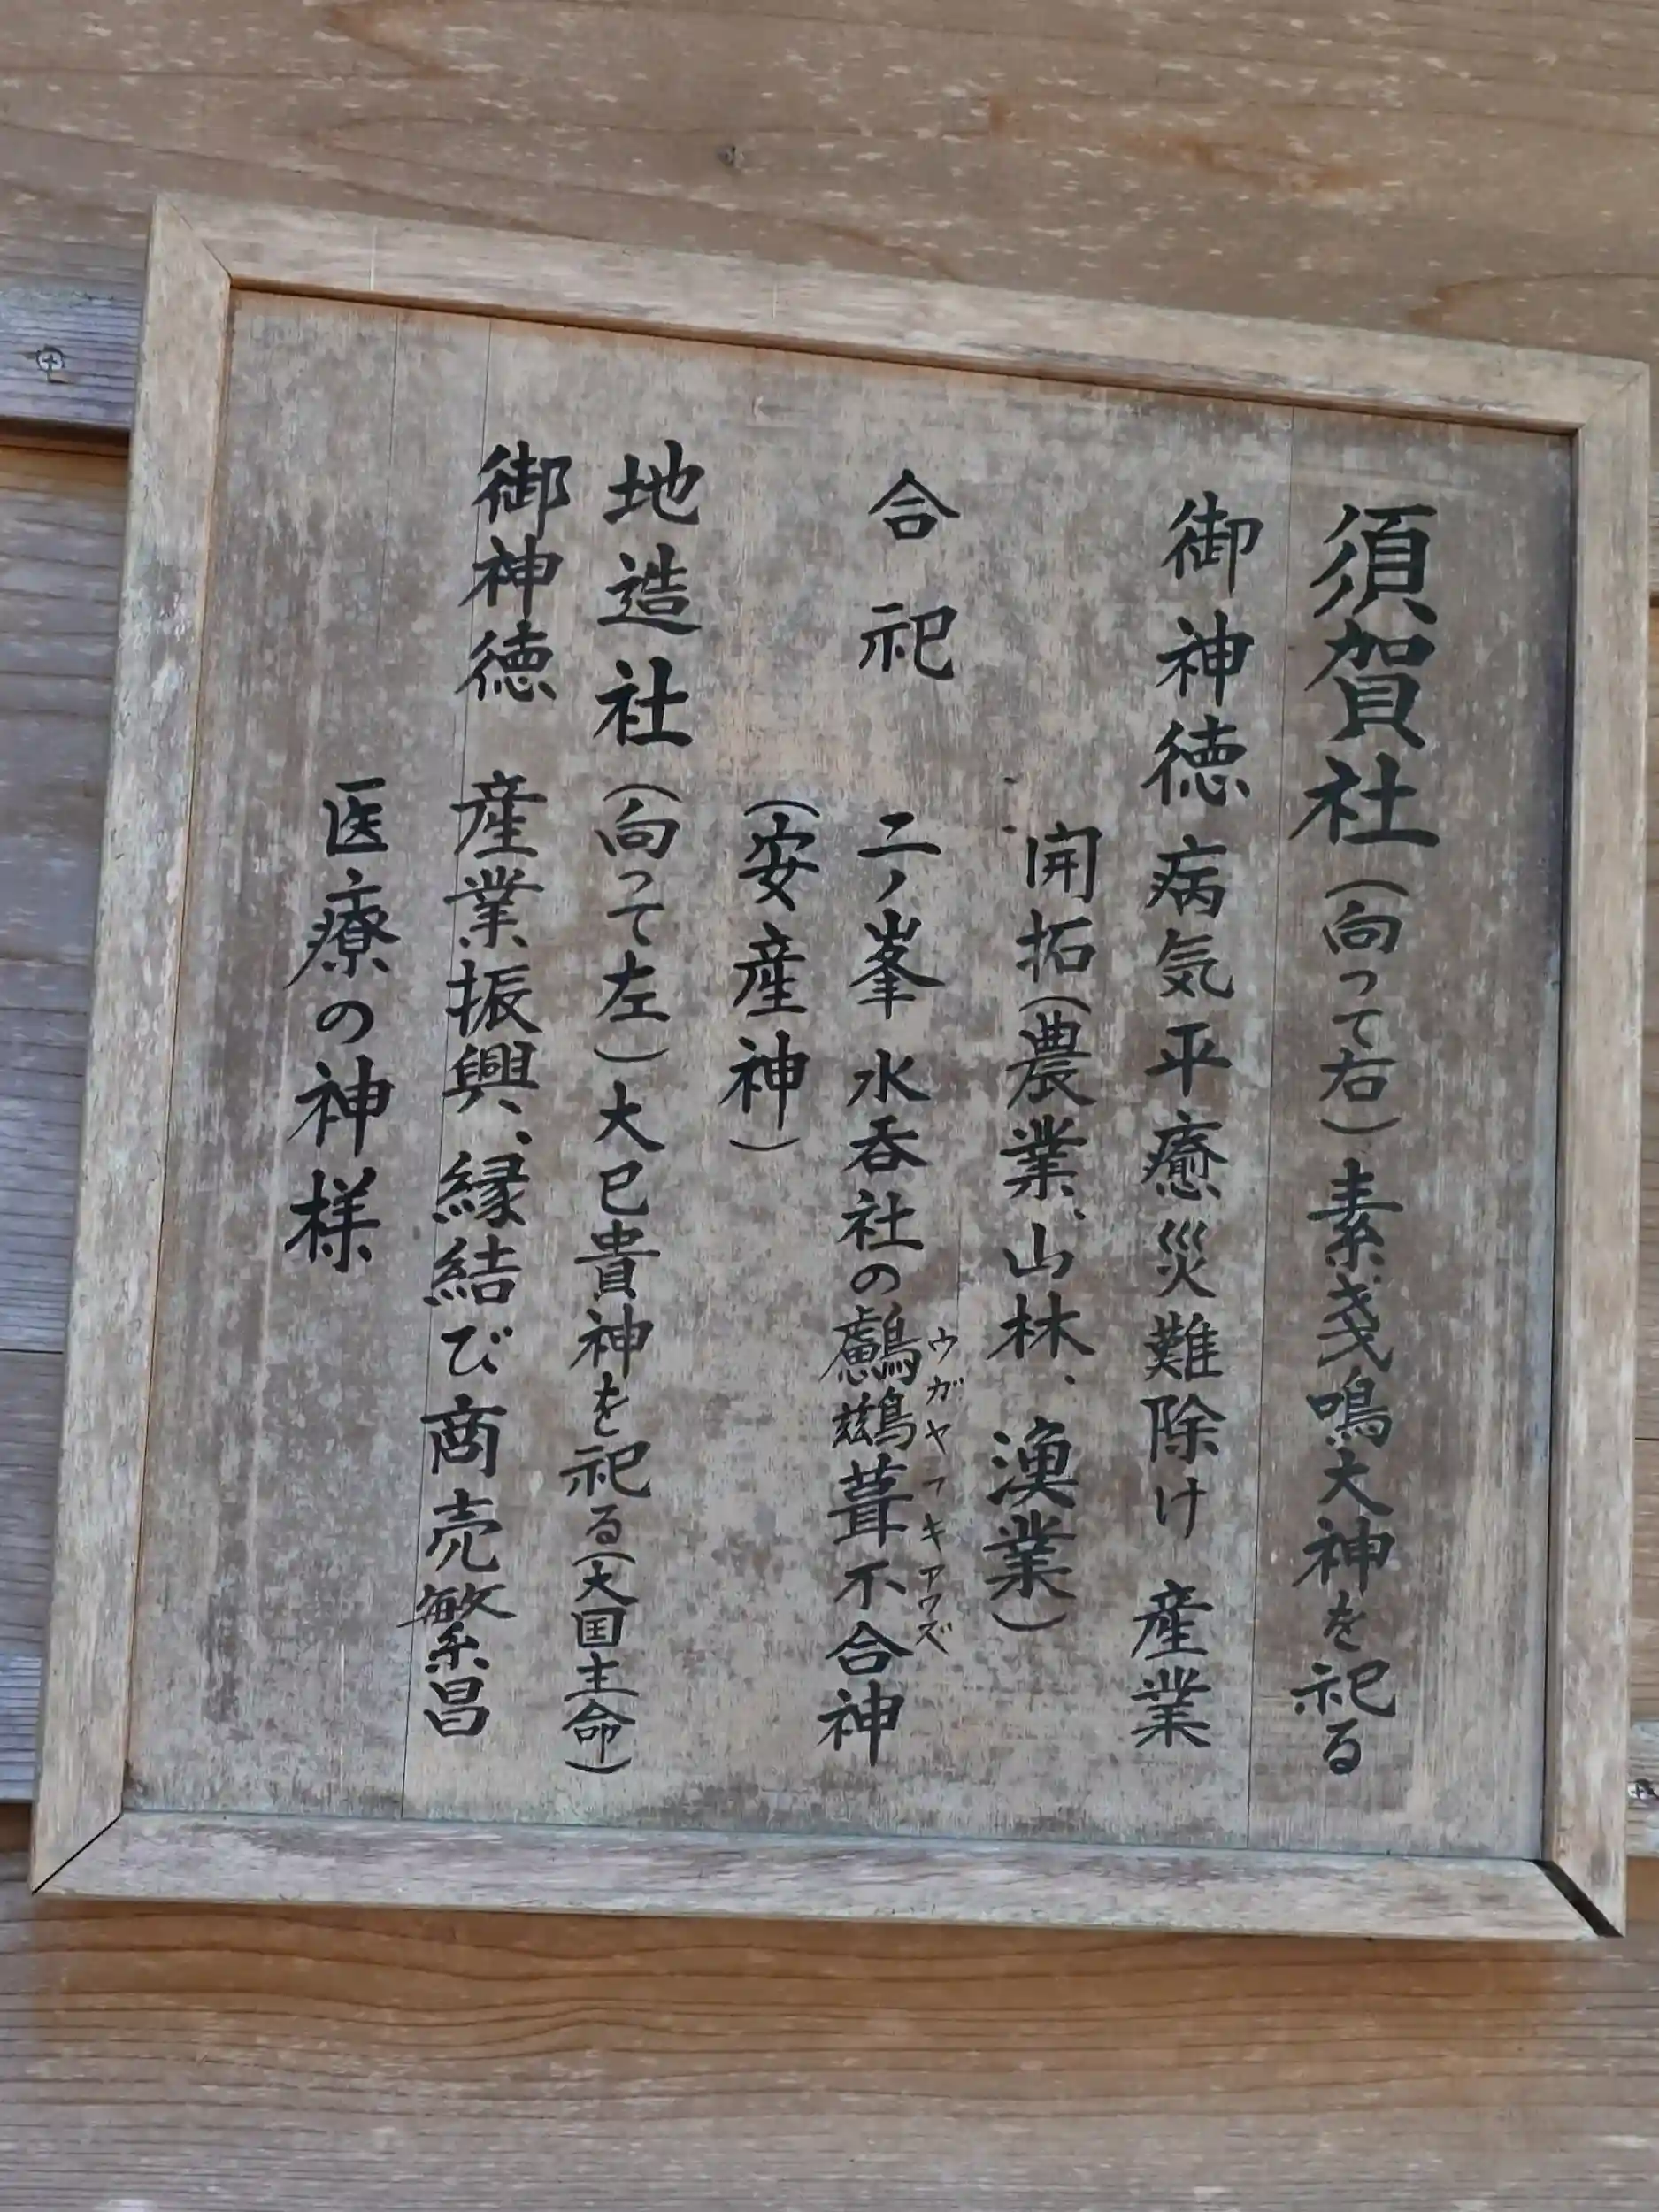 須賀社（向って右）素戔鳴大神を祀る
御神徳 病気平癒災難除け 産業
開拓（農業、山林、漁業）
合祀 二ノ峯 水呑社の鸕鷀葺不合神
ウガヤフキアワズ
（安産神）
地造社（向って左）大已貴神を祀る（大国主命）
御神徳 産業振興、縁結び商売繁昌
医療の神様